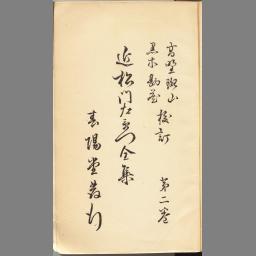 高野辰之
黒木勘蔵
校訂
近松門左衛門全集
第二巻
春陽堂発行